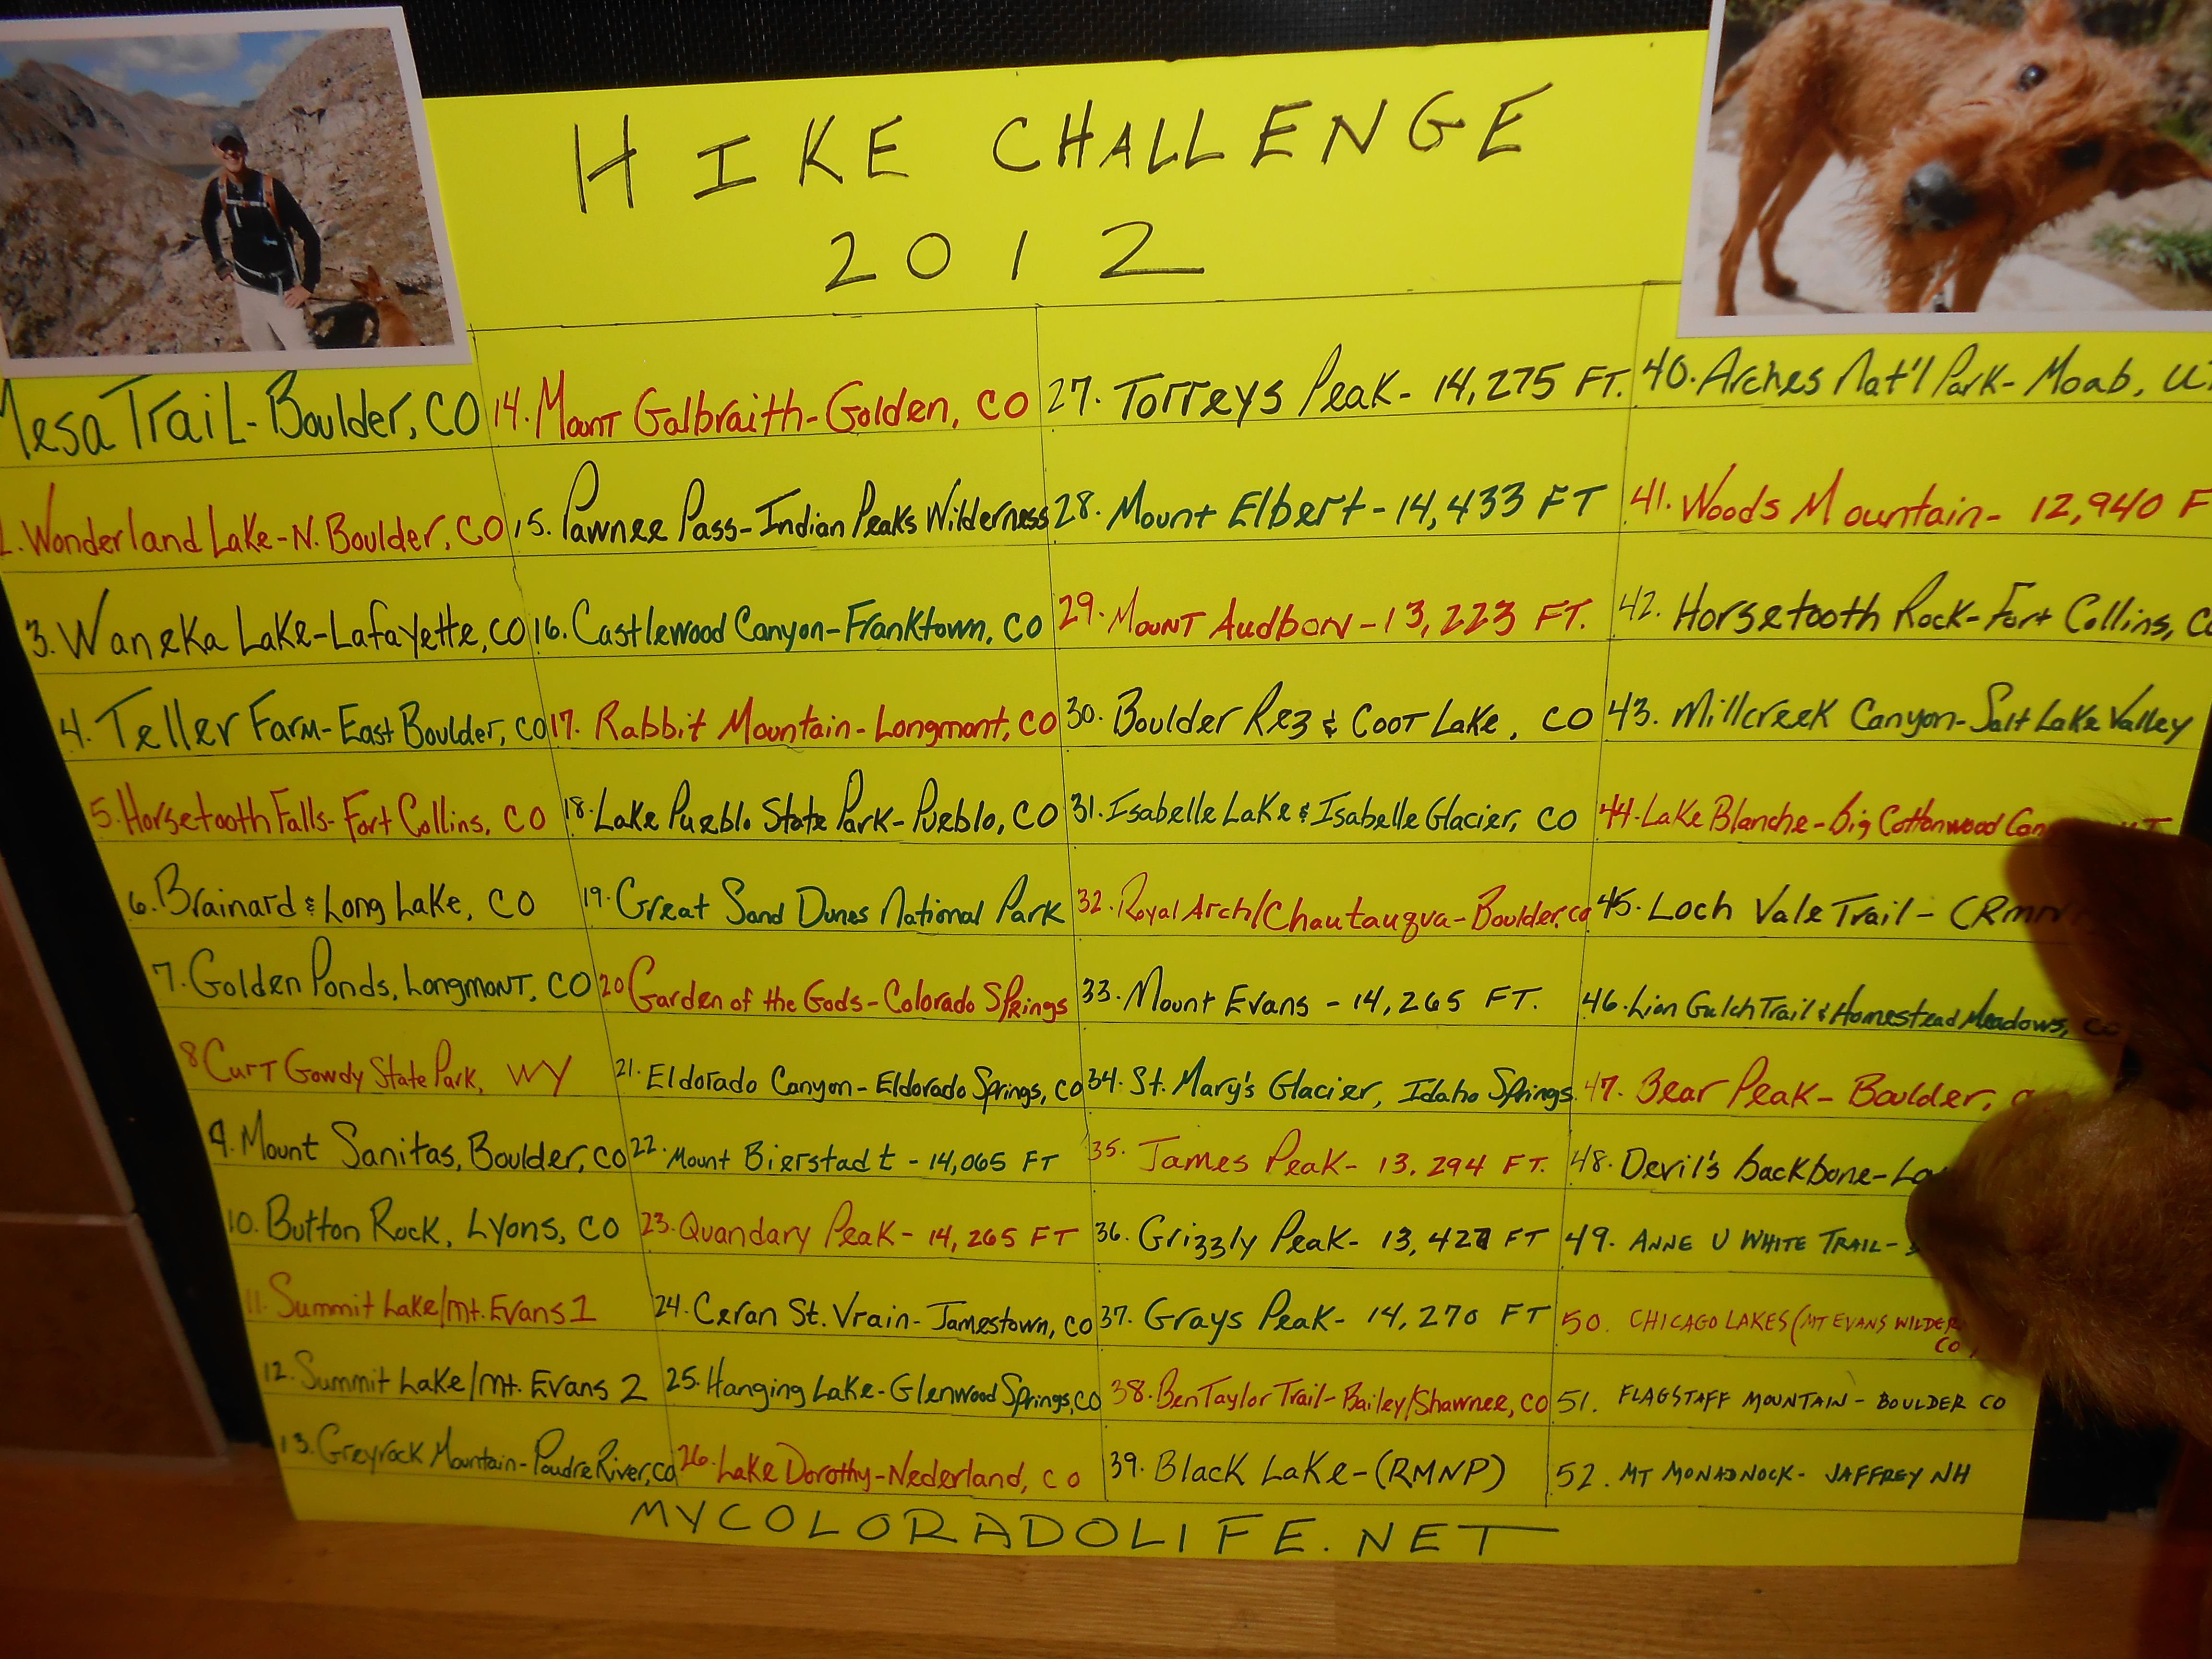 HIKE CHALLENGE
2012
Mesa Trail-Boulder, CO
2. Wonderland Lake-N. Boulder, CO
3. Waneka Lake-Lafayette, CO
4. Teller Farm-East Boulder, CO
5. Horsetooth Falls-Fort Collins, CO
6. Brainard & Long Lake, CO
7. Golden Ponds, Longmont, CO
8 Curt Gowdy State Park, WY
9. Mount Sanitas, Boulder, CO
10. Button Rock, Lyons, CO
11. Summit Lake/Mt. Evans 1
12. Summit Lake/Mt. Evans 2
13. Greyrock Mountain-Poudre River, CO
14. Mount Galbraith-Golden, CO
15. Pawnee Pass-Indian Peaks Wilderness
16. Castlewood Canyon-Franktown, CO
17. Rabbit Mountain-Longmont, CO
18. Lake Pueblo State Park-Pueblo, CO
19. Great Sand Dunes National Park
20 Garden of the Gods-Colorado Springs
21. Eldorado Canyon-Eldorado Springs, CO
22. Mount Bierstadt - 14,065 FT
23. Quandary Peak - 14,265 FT
24. Ceran St. Vrain-Jamestown, CO
25. Hanging Lake-Glenwood Springs, CO
26. Lake Dorothy-Nederland, CO
27. Torreys Peak- 14,275 FT.
28. Mount Elbert-14,433 FT
29. Mount Audbon-13,223 FT.
30. Boulder Rez & Coot Lake, CO
31. Isabelle Lake & Isabelle Glacier, CO
32. Royal Arch/Chautauqua-Boulder, CO
33. Mount Evans - 14,265 FT.
34. St. Mary's Glacier, Idaho Springs
35. James Peak- 13,294 FT.
36. Grizzly Peak- 13,427 FT
37. Grays Peak- 14,270 FT
38. Ben Taylor Trail-Bailey/Shawnee, CO
39. Black Lake-(RMNP)
40. Arches Nat'l Park- Moab, UT
41. Woods Mountain- 12,940 F
42. Horsetooth Rock-Fort Collins, CO
43. Millcreek Canyon-Salt Lake Valley
44. Lake Blanche-Big Cottonwood Can
45. Loch Vale Trail - (RMN
46. Lion Gulch Trail & Homestead Meadows, CO
47. Bear Peak- Boulder,
48. Devil's backbone-Lo
49. ANNE U WHITE TRAIL-
50. CHICAGO LAKES (MT EVANS WILDER
CO
51. FLAGSTAFF MOUNTAIN - BOULDER CO
52. MT MONADNOCK- JAFFREY NH
MYCOLORADOLIFE.NET